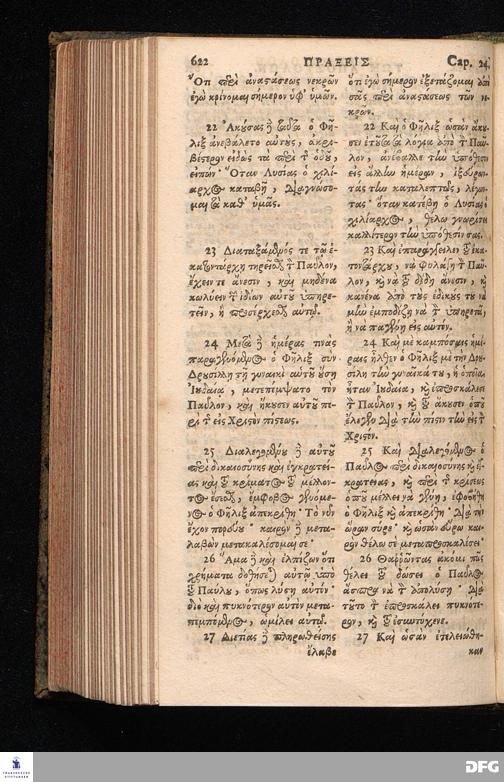 622
ΠΡΑΞΕΙΣ
Cap. 24.
Ὅτι περὶ ἀναστάσεως νεκρῶν
ἐγὼ κρίνομαι σήμερον ὑφ' ὑμῶν.
22 Ἀκούσας δὲ ταῦτα ὁ Φῆ-
λιξ ἀνεβάλετο αὐτους, ἀκρι-
βέστερον εἰδὼς τὰ περὶ τ ὁδοῦ,
εἰπών· Ὅταν Λυσίας ὁ χιλί-
αρχος καταβῇ, διαγνώσο-
μαι τὰ καθ' ὑμᾶς.
23 Διαταξάμενός τε τῷ ἑ-
κατοντάρχῃ τηρεῖσθαι τ Παῦλον,
ἔχειν τε ἄνεσιν, καὶ μηδένα
κωλύειν τ ἰδίων αὐτοῦ ὑπηρε-
τεῖν, ἢ προσέρχεσθαι αὐτῷ.
24 Μετὰ δὲ ἡμέρας τινὰς
παραγενόμενος ὁ Φῆλιξ συν
Δρυσίλλῃ τῇ γυναικὶ αὐτοῦ οὔσῃ
Ἰουδαία, μετεπέμψατο τὸν
Παῦλον, καὶ ἤκουσεν αὐτοῦ πε-
ρὶ τ εἰς Χριστὸν πίστεως.
25 Διαλεγομένου δὲ αὐτοῦ
περὶ δικαιοσύνης καὶ ἐγκρατεί-
ας καὶ τοῦ κρίματος τοῦ μέλλον-
τος ἔσεσθαι, ἔμφοβος γενόμε-
νος ὁ Φῆλιξ ἀπεκρίθη· Τὸ νῦν
ἔχον πορεύου· καιρὸν δὲ μετα-
λαβὼν μετακαλέσομαί σε·
26 Ἅμα δὲ καὶ ἐλπίζων ὅτι
χρήματα δοθήσεται αὐτῷ ὑπὸ
τοῦ Παύλου, ὅπως λύσῃ αὐτόν·
διὸ καὶ πυκνότερον αὐτὸν μετα-
πεμπόμενος, ὡμίλει αὐτῷ.
27 Διετίας δὲ πληρωθείσης
ἔλαβε
ὅτι ἐγὼ σήμερον ἐξετάζομαι ἀπὸ
σᾶς περὶ ἀναστάσεως τῶν νε-
κρῶν.
22 Καὶ ὁ Φῆλιξ ὡσὰν ἄκου-
σεν ἐτοῦτα τὰ λόγια ἀπὸ τ Παῦ-
λον, ἀνέβαλε τὴν ὑπόθεσιν
εἰς ἄλλην ἡμέραν,
τὰς τὴν κατάλεπτῶς, λέγων-
τας· ὅταν κατέβῃ ὁ Λυσίας ὁ
χιλίαρχος, θέλω γνωρίσει
καλλίτερον τὴν ὑπόθεσίν σας.
23 Καὶ ἐπαράγγειλεν τοῦ ἑκα-
τοντάρχου, νὰ φυλάγῃ τ Παῦ-
λον, καὶ νὰ τοῦ δίδῃ ἄνεσιν, καὶ
κανένα ἀπὸ τοὺς ἐδικούς του νὰ
μὴν ἐμποδίζῃ νὰ τ ὑπηρετᾷ,
ἢ νὰ πηγαίνῃ εἰς αὐτόν.
24 Καὶ μὲ κάμποσαις ἡμέ-
ραις ἦλθεν ὁ Φῆλιξ μὲ τὴν Δρυ-
σίλη τὴν γυναῖκά του, ἡ ὁποία,
ἦταν Ἰουδαία, καὶ ἐπροσκάλεσε
τ Παῦλον, καὶ τοῦ ἄκουσεν ὁποῦ
ἔλεγεν διὰ τὴν πίστιν τὴν εἰς τ
Χριστόν.
25 Καὶ διαλεγόμενος ὁ
Παῦλος περὶ δικαιοσύνης καὶ ἐγ-
κρατείας, καὶ περὶ τ κρίσεως
ὁποῦ μέλλει νὰ γένῃ, ἐφοβήθη
ὁ Φῆλιξ καὶ ἀπεκρίθη· Διὰ τὴν
ὥραν σῦρε· καὶ ὡσὰν εὕρω και-
ρὸν θέλω σὲ μεταπροσκαλέσει·
26 Θαῤῥῶντας ἀκόμι πῶς
θέλει τοῦ δώσει ὁ Παῦλος
ἄσπρα νὰ τ ἀπολύσῃ· διὰ
τοῦτο τ ἐπροσκάλει πυκνότε-
ρον, καὶ τοῦ ἐσυντύχενε.
27 Καὶ ὡσὰν ἐτελειώθη-
καν